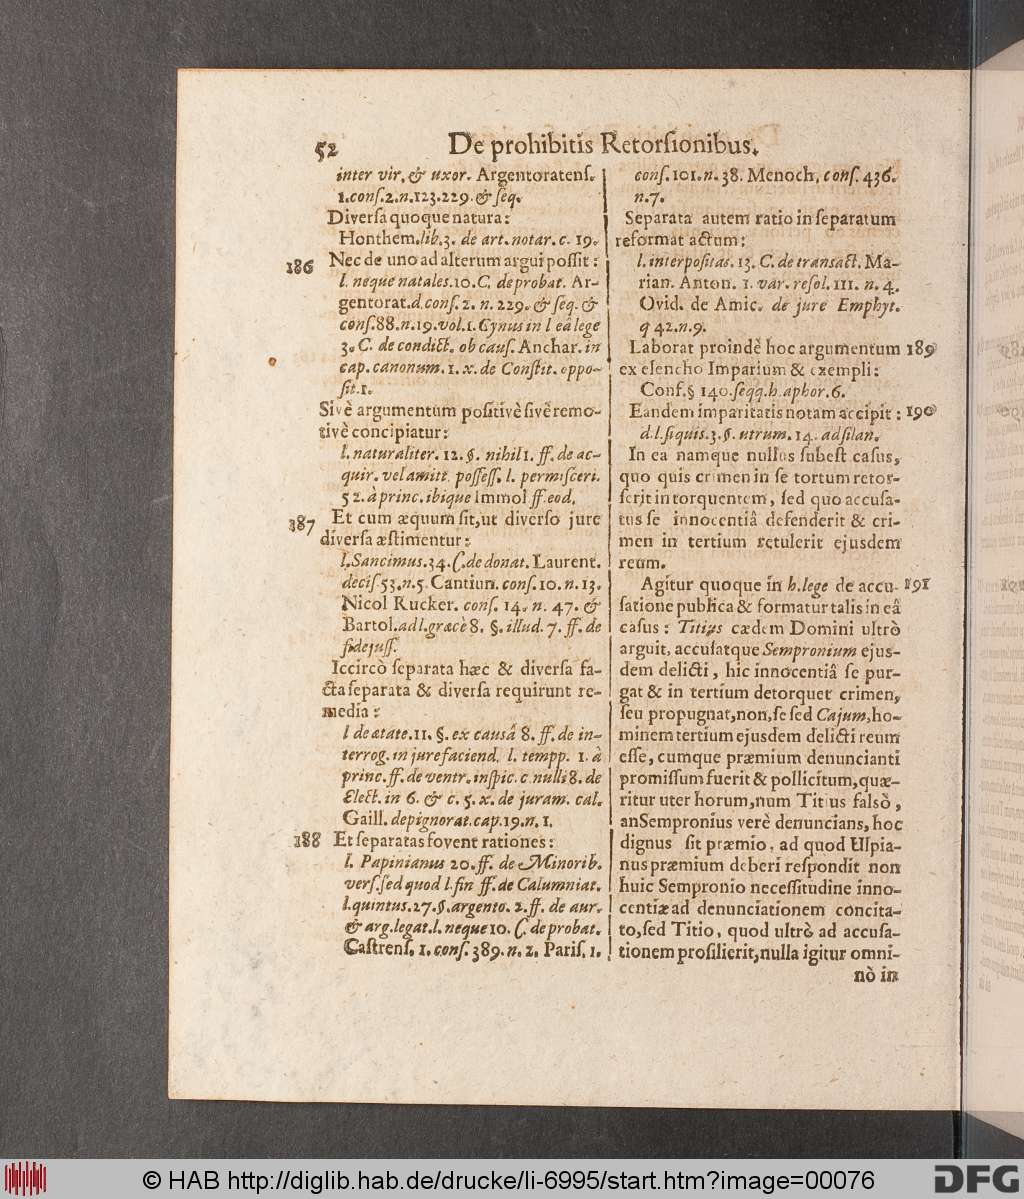 52 De prohibitis Retorſionibus.
inter vir. & uxor. Argentoratenſ.
1. conſ. 2. n. 123. 229. & ſeq.
Diverſa quoque natura:
Honthem. lib. 3. de art. notar. c. 19.
186 Nec de uno ad alterum argui poſſit:
l. neque natales. 10. C. de probat. Ar-
gentorat. d. conſ. 2. n. 229. & ſeq. &
conſ. 88. n. 19. vol. 1. Cynus in l eâ lege
3. C. de condict. ob cauſ. Anchar. in
cap. canonum. 1. x. de Conſtit. oppo-
ſit. 1.
Sivè argumentum poſitivè ſivè remo-
tivè concipiatur:
l. naturaliter. 12. §. nihil 1. ff. de ac-
quir. vel amitt. poſſeſſ. l. permiſceri.
52. à princ. ibique Immol ff. eod.
387 Et cum æquum ſit, ut diverſo jure
diverſa æſtimentur:
l. Sancimus. 34. C. de donat. Laurent.
deciſ 53. n. 5. Cantiun. conſ. 10. n. 13.
Nicol Rucker. conſ. 14. n. 47. &
Bartol. ad l. græcè 8. §. illud. 7. ff. de
fidejuſſ.
Iccircò ſeparata hæc & diverſa fa-
cta ſeparata & diverſa requirunt re-
media:
l de ætate. 11. §. ex causâ 8. ff. de in-
terrog. in jure faciend. l. tempp. 1. à
princ. ff. de ventr. inſpic. c. nulli 8. de
Elect. in 6. & c. 5. x. de juram. cal.
Gaill. de pignorat. cap. 19. n. 1.
188 Et ſeparatas fovent rationes:
l. Papinianus 20. ff. de Minorib.
verſ. ſed quod l. fin ff. de Calumniat.
l. quintus. 27. §. argento. 2. ff. de aur.
& arg. legat. l. neque 10. C. de probat.
Caſtrenſ. 1. conſ. 389. n. 2. Pariſ. 1.
conſ. 101. n. 38. Menoch. conſ. 436.
n. 7.
Separata autem ratio in ſeparatum
reformat actum:
l. interpoſitas. 13. C. de transact. Ma-
rian. Anton. 1. var. reſol. 111. n. 4.
Ovid. de Amic. de jure Emphyt.
q 42. n. 9.
Laborat proindè hoc argumentum 189
ex elencho Imparium & exempli:
Conf. § 140. ſeqq. h. aphor. 6.
Eandem imparitatis notam accipit: 190
d. l. ſi quis. 3. §. utrum. 14. ad ſilan.
In ea namque nullus ſubeſt caſus,
quo quis crimen in ſe tortum retor-
ſerit in torquentem, ſed quo accuſa-
tus ſe innocentiâ defenderit & cri-
men in tertium retulerit ejusdem
reum.
Agitur quoque in h. lege de accu- 191
ſatione publica & formatur talis in eâ
caſus: Titius cædem Domini ultrò
arguit, accuſatque Sempronium ejus-
dem delicti, hic innocentiâ ſe pur-
gat & in tertium detorquet crimen,
ſeu propugnat, non, ſe ſed Cajum, ho-
minem tertium ejusdem delicti reum
eſſe, cumque præmium denuncianti
promiſſum fuerit & pollicitum, quæ-
ritur uter horum, num Titius falsò,
an Sempronius verè denuncians, hoc
dignus ſit præmio, ad quod Ulpia-
nus præmium deberi reſpondit non
huic Sempronio neceſſitudine inno-
centiæ ad denunciationem concita-
to, ſed Titio, quod ultrò ad accuſa-
tionem proſilierit, nulla igitur omni-
nò in
© HAB http://diglib.hab.de/drucke/li-6995/start.htm?image=00076
DFG